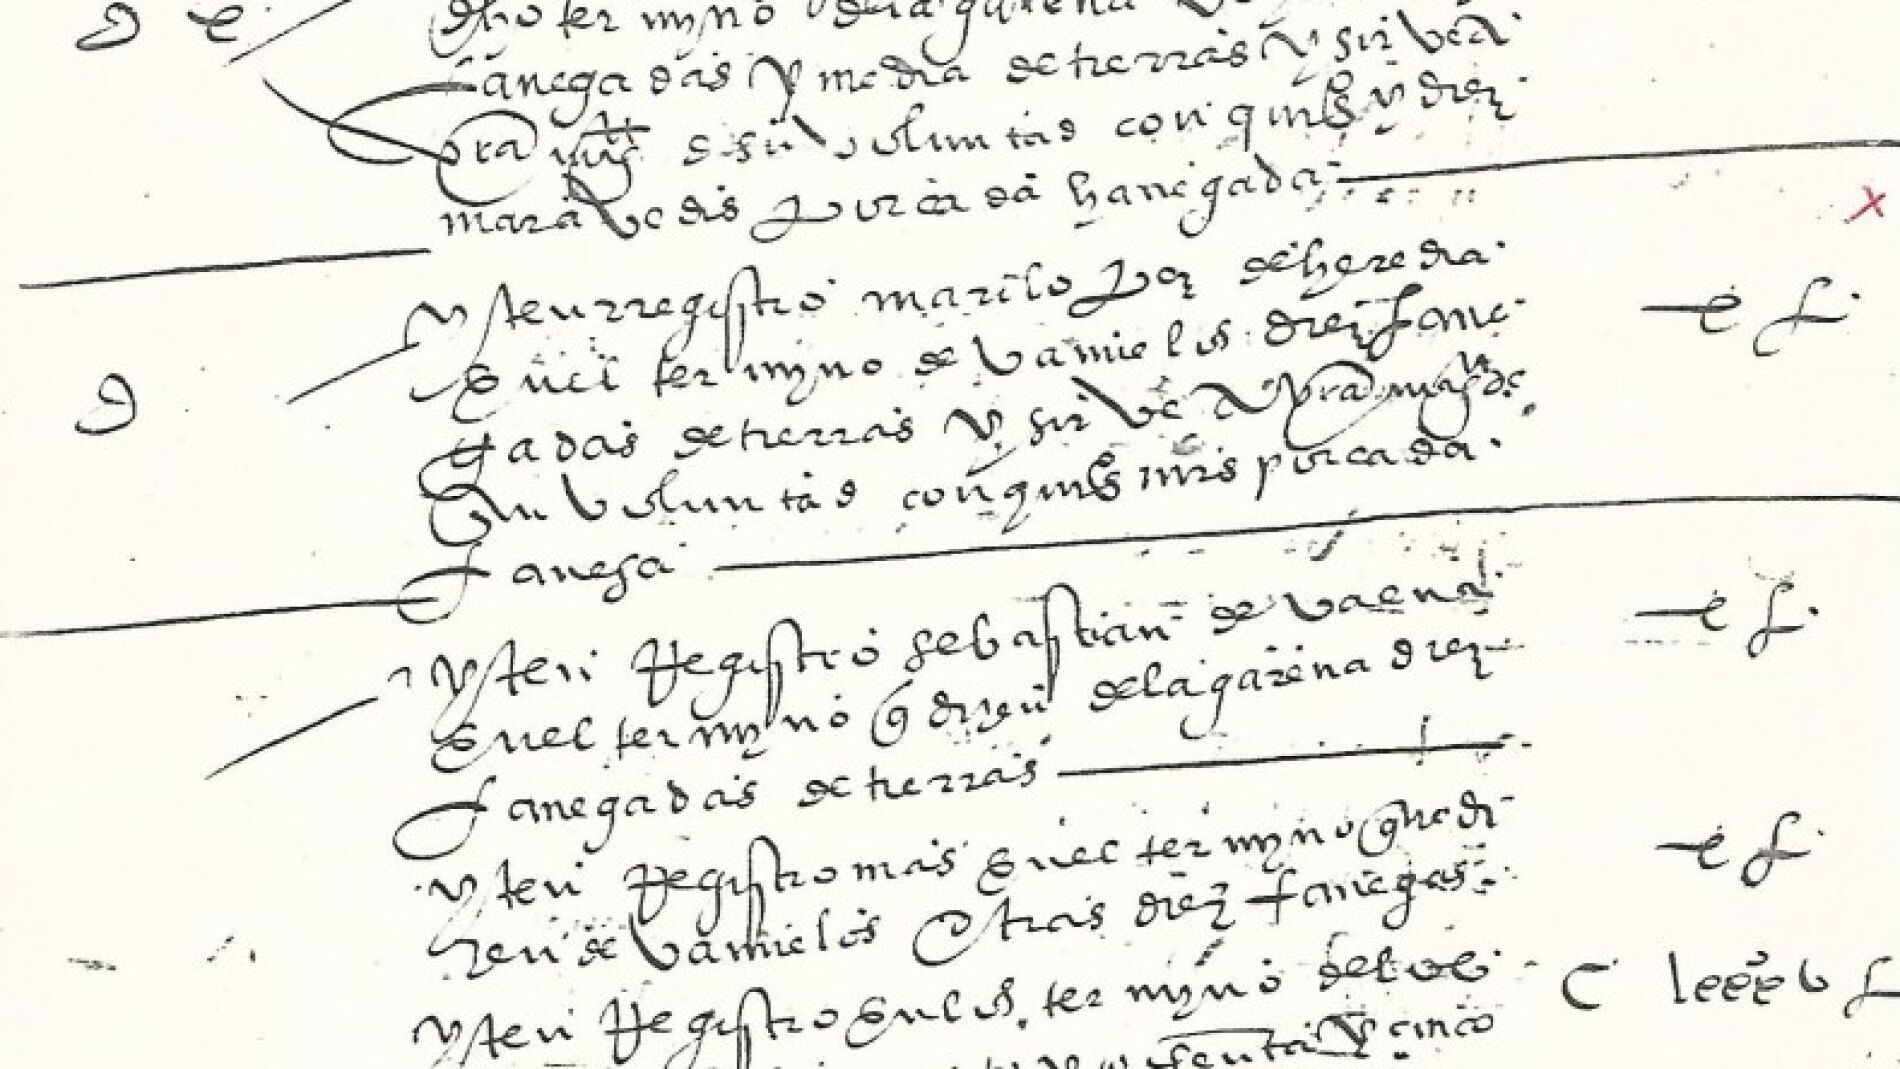 dho termyno de la garena
fanegadas y media de tierras y sirven
vra mag de su voluntad con quis y diez
maravedis por cada hanegada
yten rregistro mari lopez de heredia
en el termyno de vamielos diez fane
gadas de tierras y sirve a vra mag de
su voluntad con quis mrs por cada
fanega
yten Registro sebastian de vaena
en el termyno q dizen de la garena diez
fanegadas de tierras
yten Registro mas en el termyno que di
zen de vamielos otras diez fanegas
yten Registro en los termyno del
senta y cinco